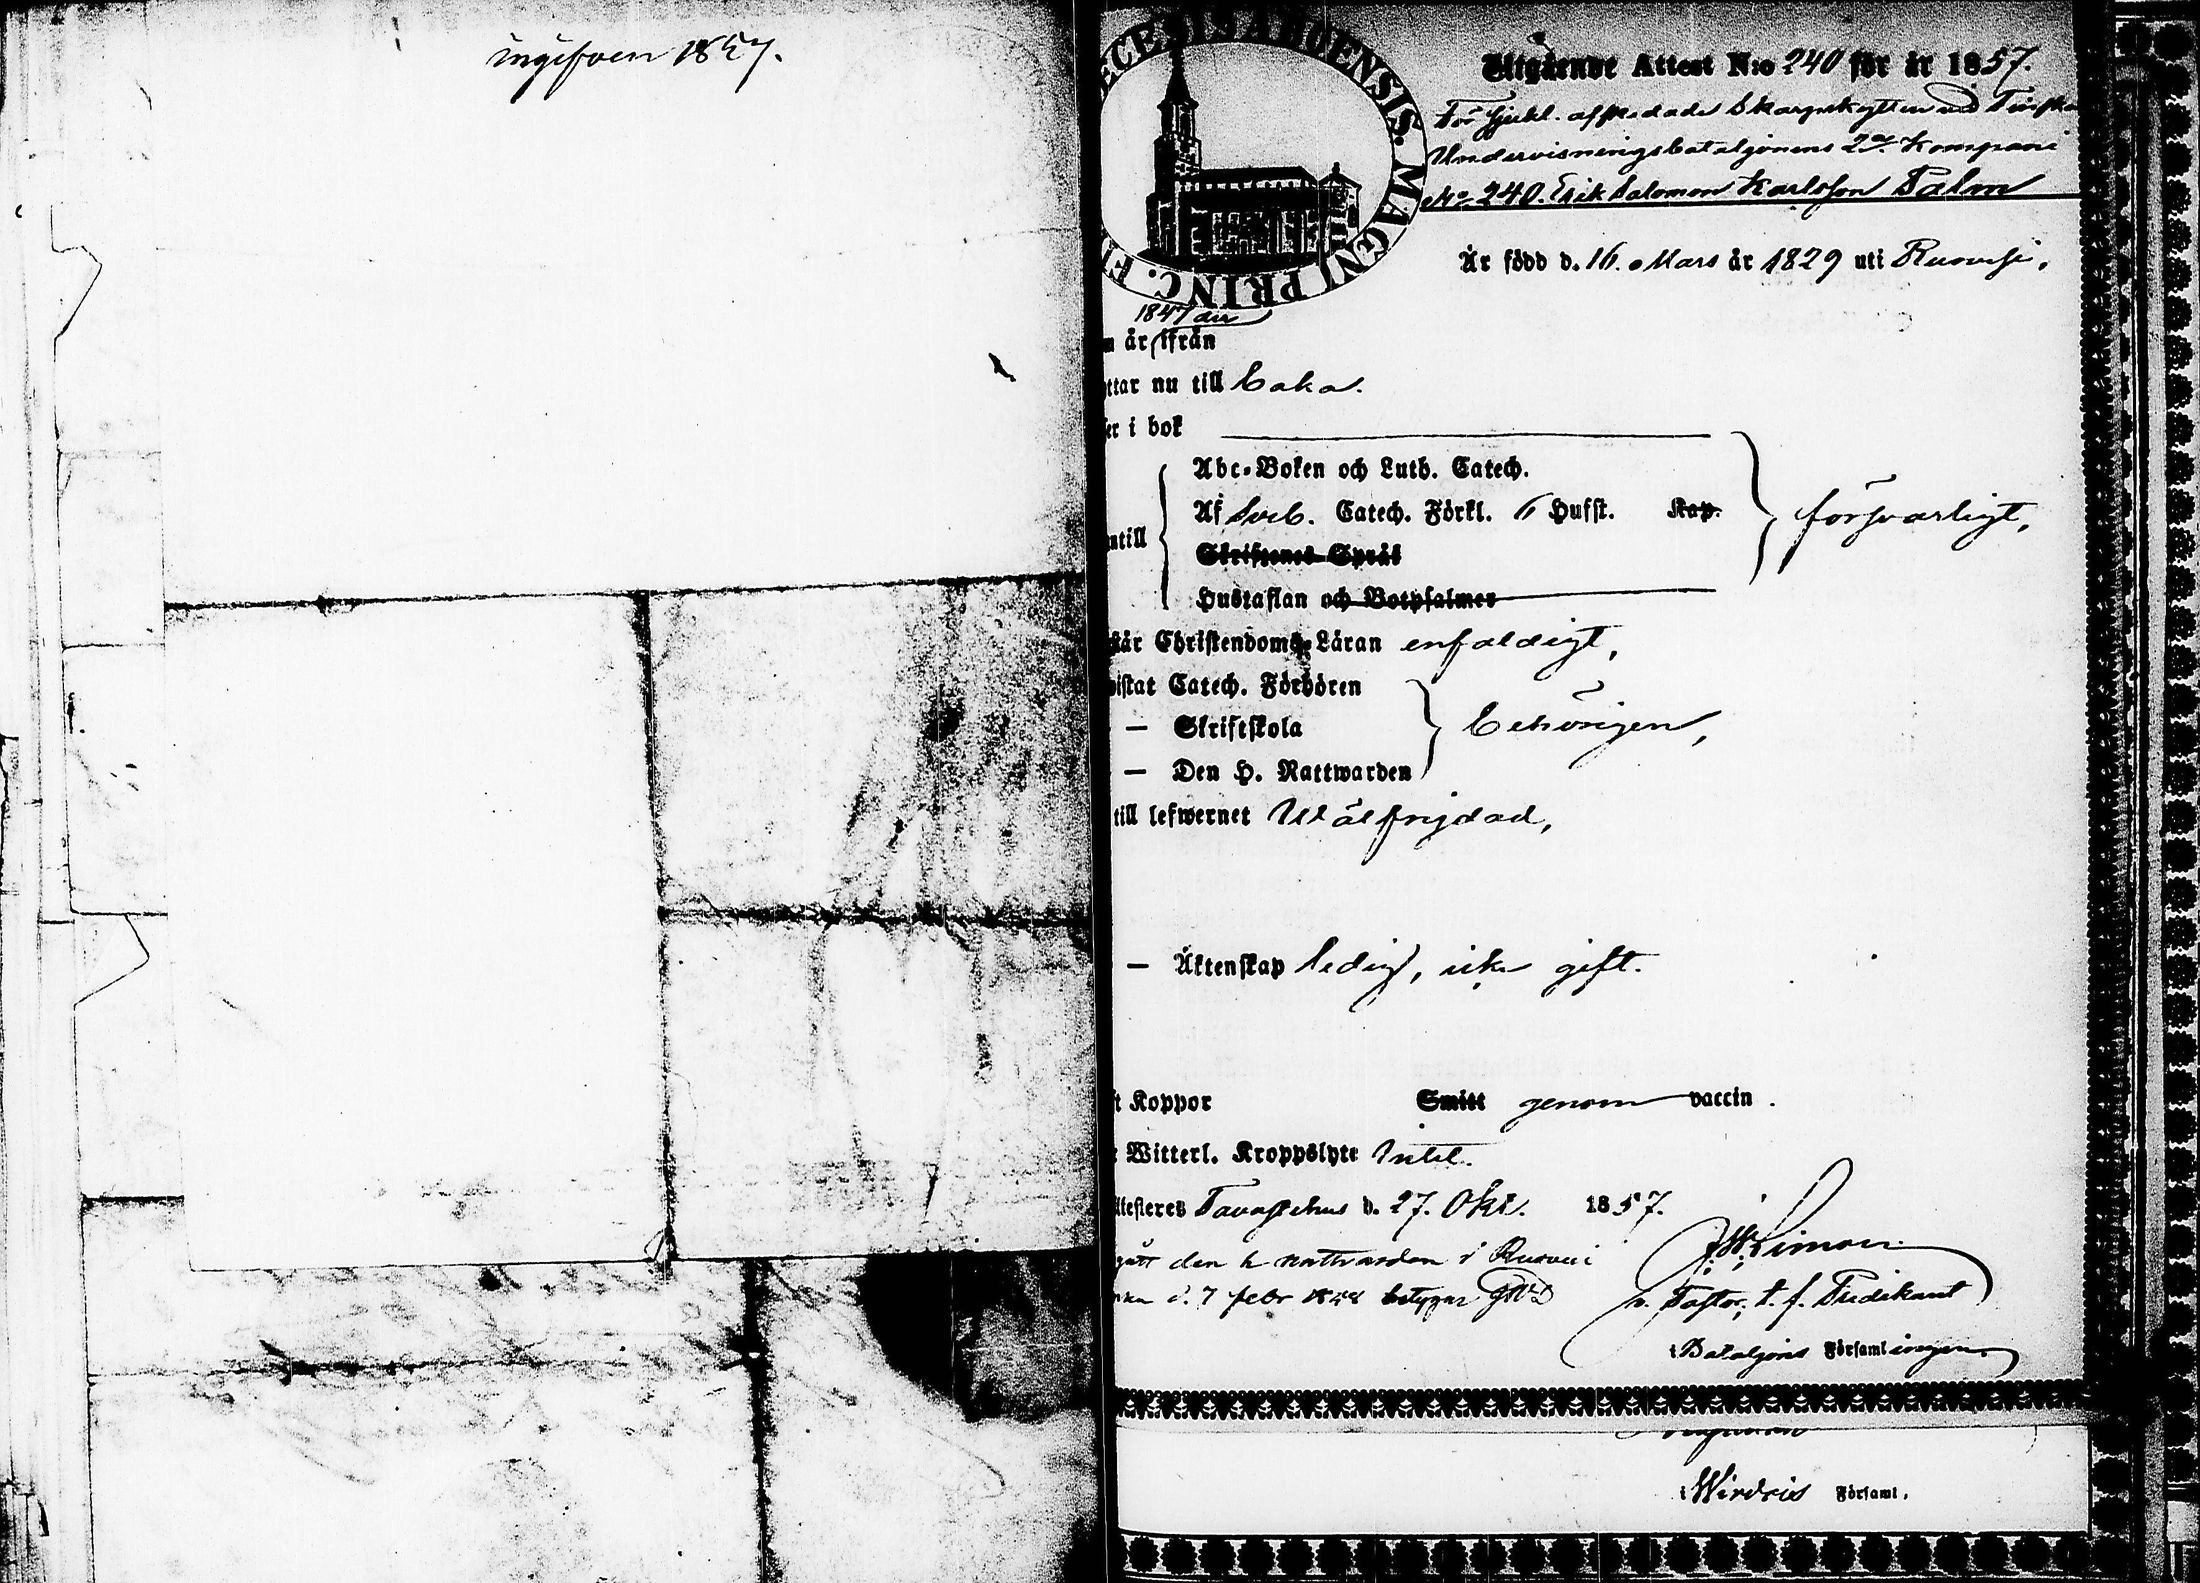 ingifven 1857.
ECESIS ABOENSIS. MAGNI PRINC. FI
Utgående Attest N:o 240 för år 1857.
För sjukl. afskedade Skarpskytten vid Finska
Undervisningsbataljonens 2a Kompani
No 240. Erik Salomon Karlsson Palm
Är född d. 16. Mars år 1829 uti Ruovesi,
1847 der
n år ifrån
ttar nu till
er i bok
Abc-Boken och Luth. Catech.
Af Sveb. Catech. Förkl. 6 Hufst. Kap.
ntill
försvarligt,
Skriftenes Språk
Hustaflan och Botpsalmer
står Christendoms-Läran enfaldigt,
vistat Catech. Förhören
— Skriftskola
behörigen,
— Den H. Nattwarden
till lefwernet Wälfrejdad,
— Äktenskap ledig, icke gift.
t Koppor Smitt genom vaccin.
Witterl. Kroppslyte intet.
ttesteres Tavastehus d. 27. Okt. 1857.
gått den h nattvarden i Ruovesi
d. 7 febr betygar
v. Pastor, t. f. Predikant
i Bataljons Församlingen
i Församl.